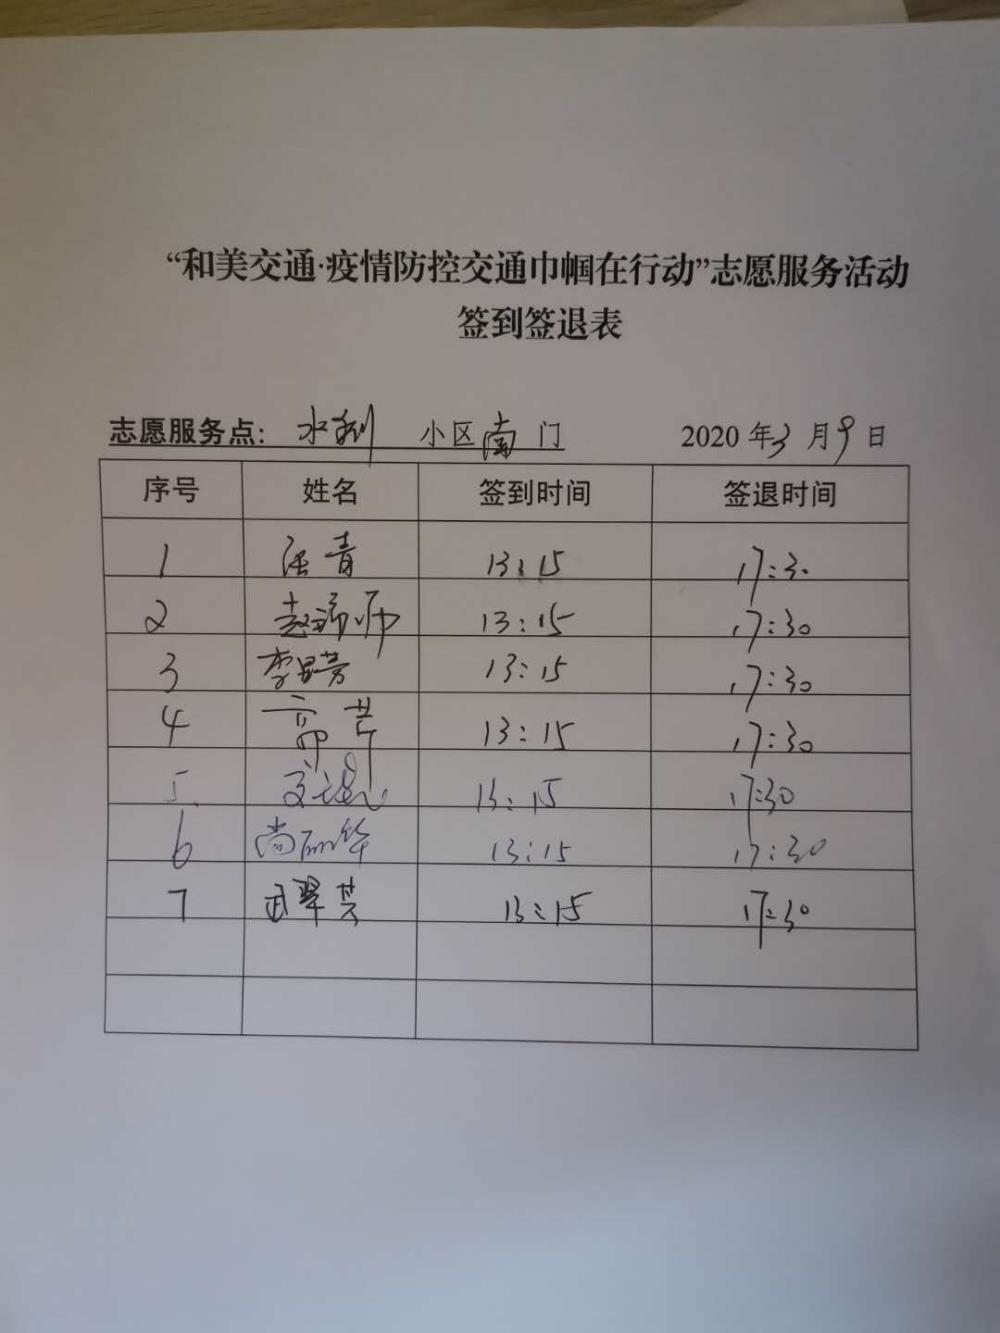 “和美交通·疫情防控交通巾帼在行动”志愿服务活动
签到签退表
志愿服务点: 水利 小区南门 2020年3月9日
序号 姓名 签到时间 签退时间
1 青 13:15 17:30
2 赵 13:15 17:30
3 李芳 13:15 17:30
4 13:15 17:30
5. 13:15 17:30
6 尚丽华 13:15 17:30
7 武翠芸 13:15 17:30